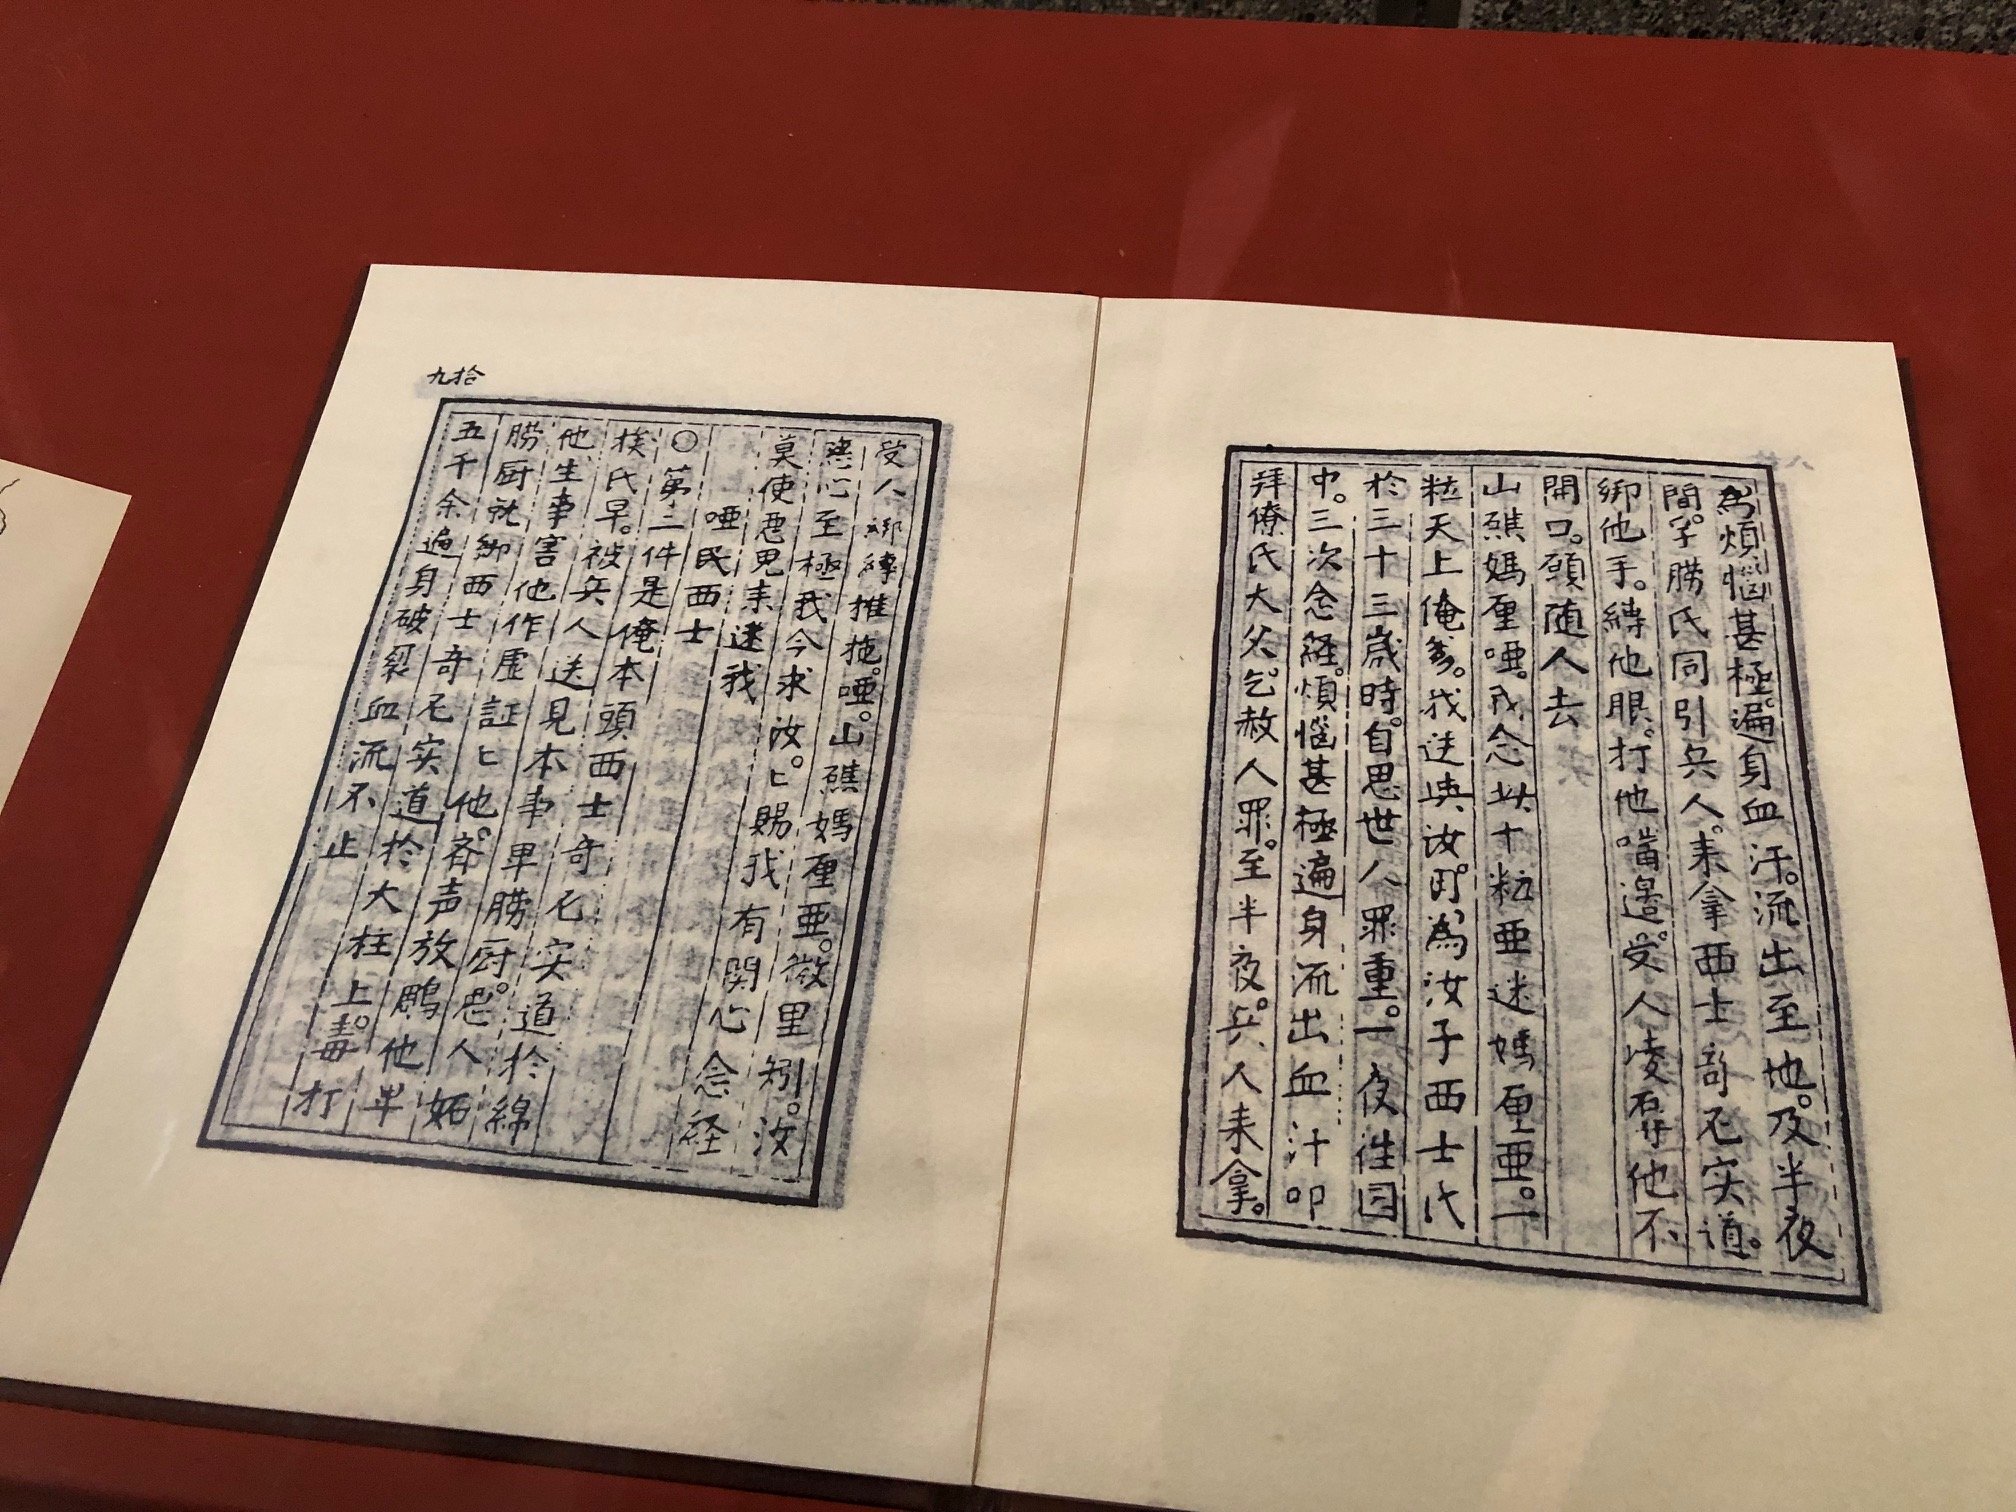 為煩惱甚極。遍身血汗。流出至地。及半夜
間。孚勝氏同引兵人。来拿西士奇尼实道。
綁他手。縛他眼。打他嘴邉。受人凌辱他不
開口。頭随人去
山礁媽厘啞。我念此十粒亜迷媽厘亜。一
粒天上俺爹。我送與汝。因為汝子西士氏
於三十三歳時。自思世人罪重。一夜往囙
中。三次念経。煩惱甚極遍身流出血汁叩
拜僚氏大父。乞赦人罪。至半夜。兵人来拿。
九拾
受人綁縛推拖。啞。山礁媽厘亜。微里矧。汝
慈心至極我今求汝。匕賜我有関心念経
莫使悪鬼来迷我
啞民西士
〇第二件是俺本頭西士奇尼实道於綿
挨氏早。被兵人送見本事畢勝厨。悪人妬
他生事害他作虚証匕他。齐声放鵰他畢
勝厨就綁西士奇尼实道於大柱上。毒打
五千余遍身破裂血流不止